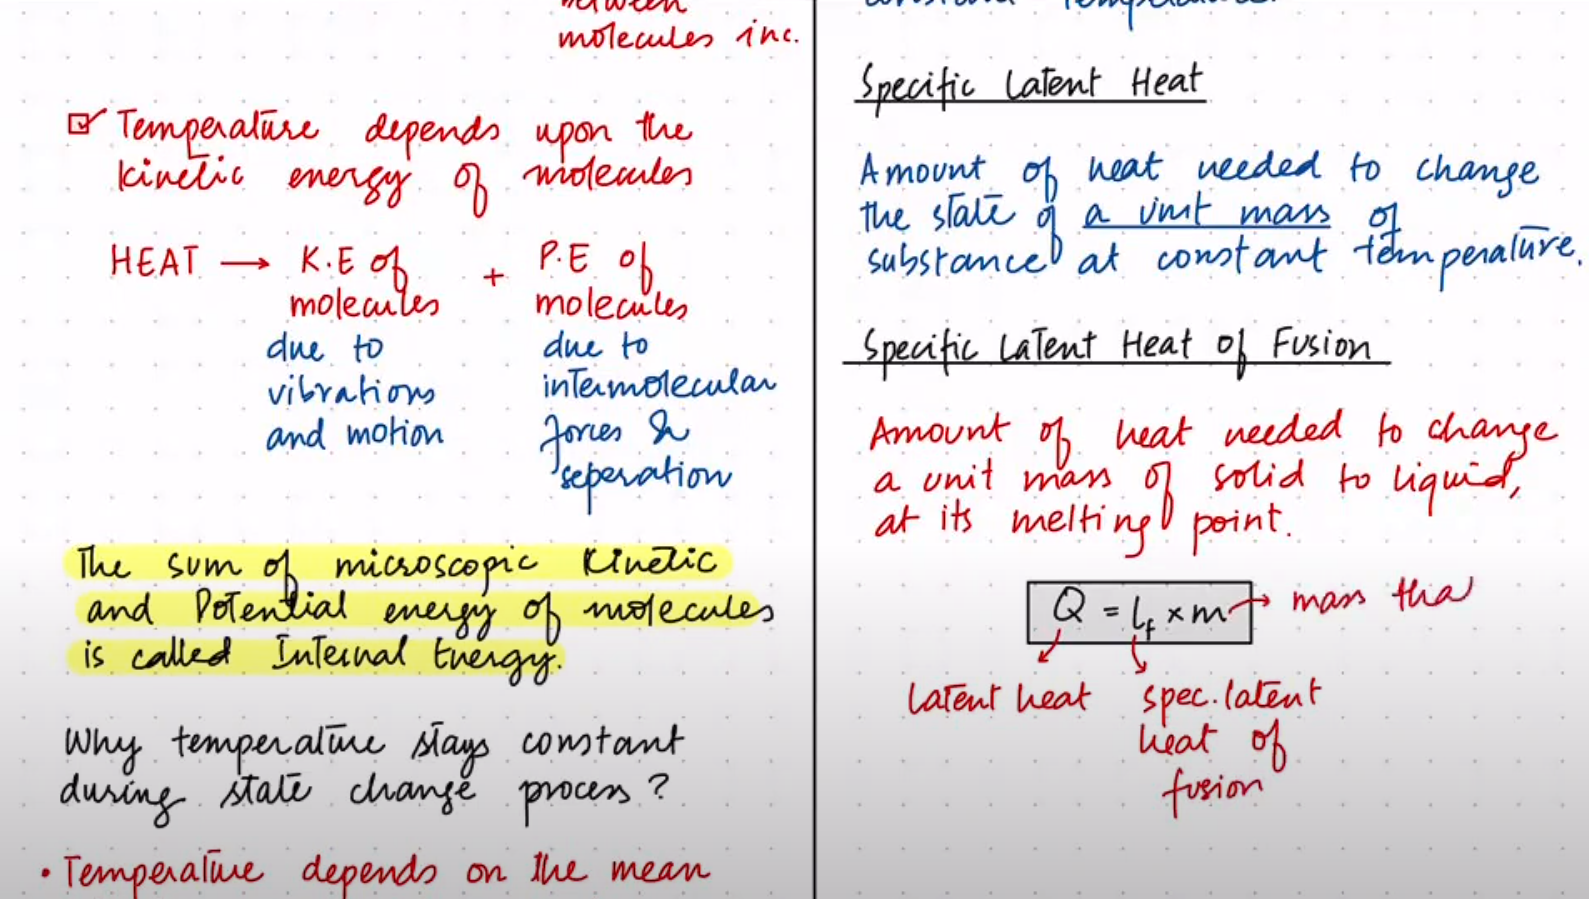 between
molecules inc.
Temperature depends upon the
kinetic energy of molecules
HEAT → K.E of
molecules
due to
vibrations
and motion
+
P.E of
molecules
due to
intermolecular
forces &
seperation
The sum of microscopic kinetic
and Potential energy of molecules
is called Internal Energy.
Why temperature stays constant
during state change process?
• Temperature depends on the mean
constant temperature.
Specific Latent Heat
Amount of heat needed to change
the state of a unit mass of
substance at constant temperature.
Specific Latent Heat of Fusion
Amount of heat needed to change
a unit mass of solid to liquid,
at its melting point.
Q = Lf × m → mass tha
Latent heat
spec. latent
heat of
fusion